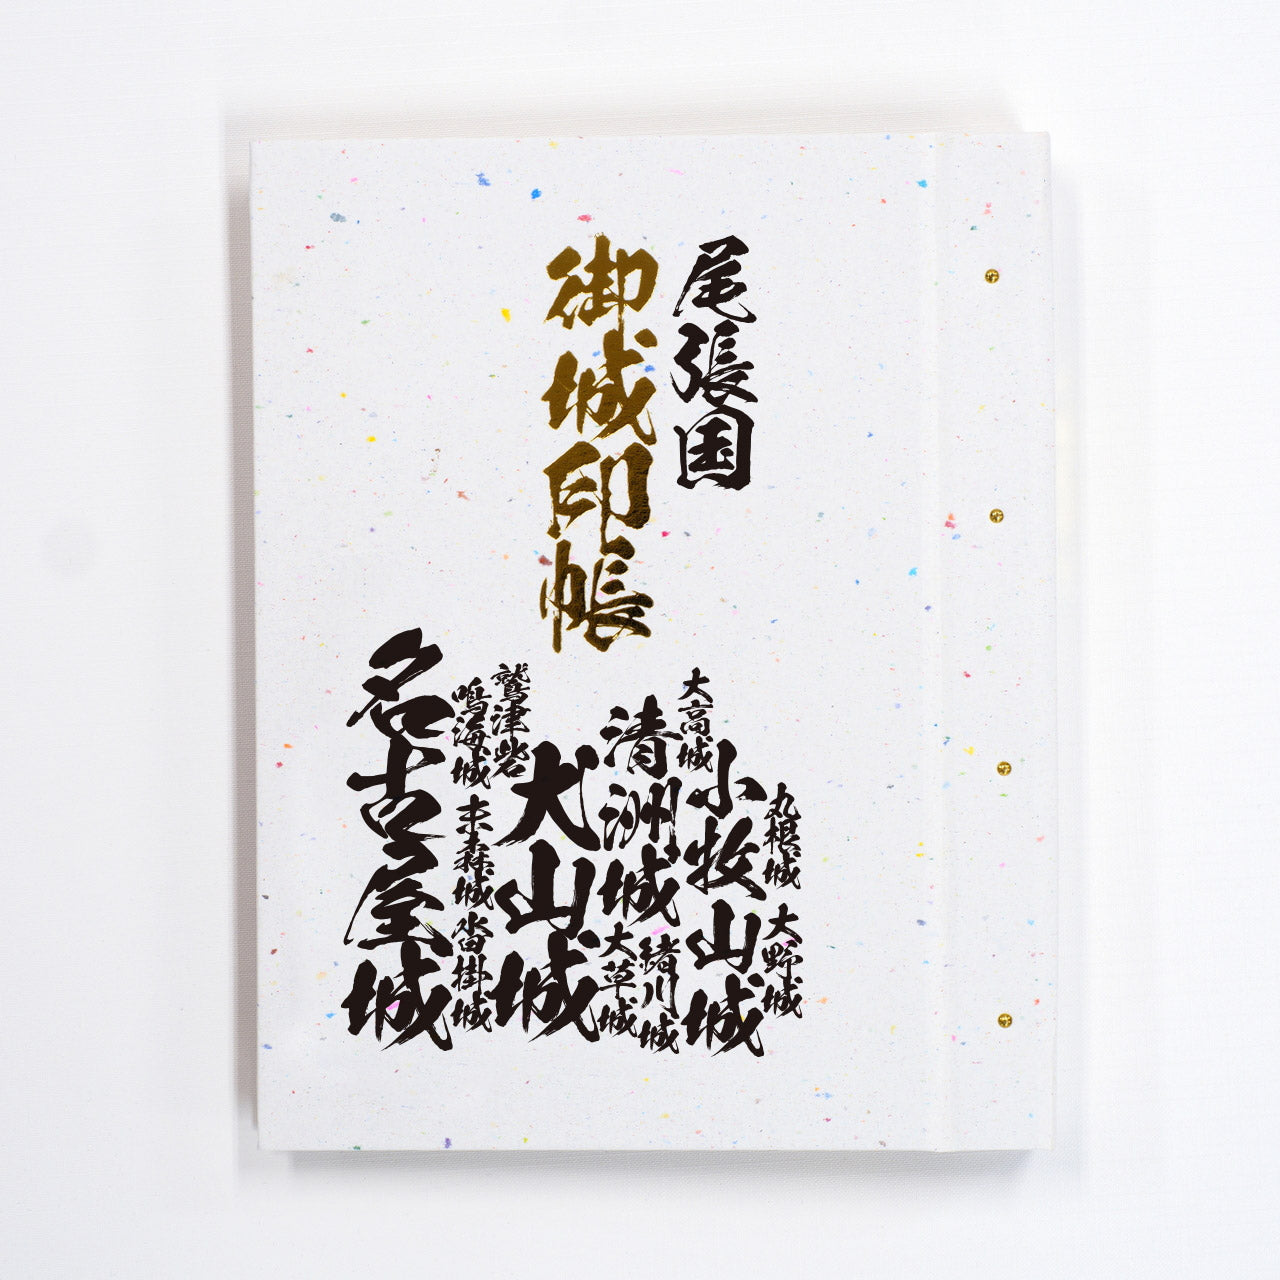 尾張国
御城印帳
丸根城
大野城
大高城
小牧山城
清洲城
緒川城
大草城
鷲津砦
犬山城
鳴海城
末森城
沓掛城
名古屋城